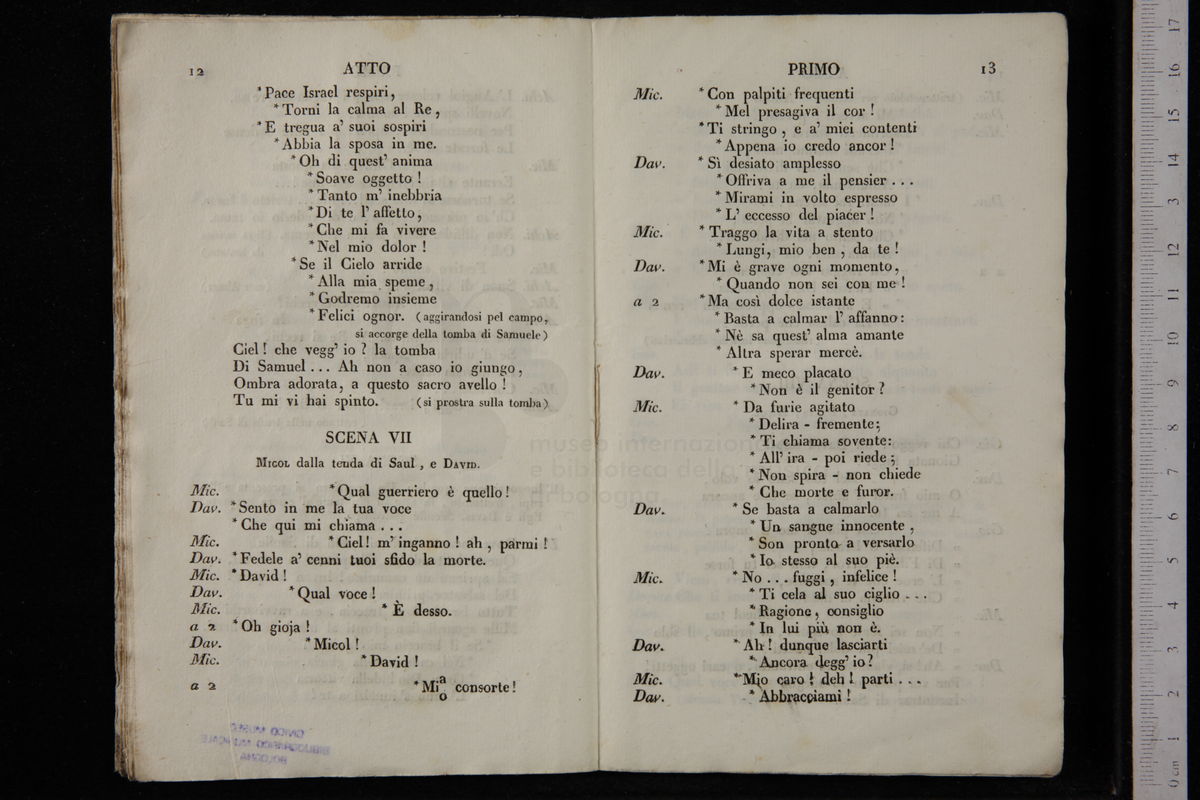 12 ATTO
*Pace Israel respiri,
*Torni la calma al Re,
*E tregua a' suoi sospiri
*Abbia la sposa in me.
*Oh di quest' anima
*Soave oggetto !
*Tanto m' inebbria
*Di te l' affetto,
*Che mi fa vivere
*Nel mio dolor !
*Se il Cielo arride
*Alla mia speme,
*Godremo insieme
*Felici ognor. (aggirandosi pel campo,
si accorge della tomba di Samuele)
Ciel ! che vegg' io ? la tomba
Di Samuel ... Ah non a caso io giungo,
Ombra adorata, a questo sacro avello !
Tu mi vi hai spinto. (si prostra sulla tomba)
SCENA VII
MICOL dalla tenda di Saul, e DAVID.
Mic. *Qual guerriero è quello !
Dav. *Sento in me la tua voce
*Che qui mi chiama ...
Mic. *Ciel! m' inganno ! ah, parmi !
Dav. *Fedele a' cenni tuoi sfido la morte.
Mic. *David !
Dav. *Qual voce !
Mic. *È desso.
a 2 *Oh gioja !
Dav. *Micol !
Mic. *David !
a 2 *Mi a o consorte !
PRIMO 13
Mic. *Con palpiti frequenti
*Mel presagiva il cor !
*Ti stringo, e a' miei contenti
*Appena io credo ancor !
Dav. *Sì desiato amplesso
*Offriva a me il pensier ...
*Mirami in volto espresso
*L' eccesso del piacer !
Mic. *Traggo la vita a stento
*Lungi, mio ben, da te !
Dav. *Mi è grave ogni momento,
*Quando non sei con me !
a 2 *Ma così dolce istante
*Basta a calmar l' affanno:
*Nè sa quest' alma amante
*Altra sperar mercè.
Dav. *E meco placato
*Non è il genitor ?
Mic. *Da furie agitato
*Delira - fremente;
*Ti chiama sovente:
*All' ira - poi riede;
*Non spira - non chiede
*Che morte e furor.
Dav. *Se basta a calmarlo
*Un sangue innocente,
*Son pronto a versarlo
*Io stesso al suo piè.
Mic. *No ... fuggi, infelice !
*Ti cela al suo ciglio ...
*Ragione, consiglio
*In lui più non è.
Dav. *Ah ! dunque lasciarti
*Ancora degg' io ?
Mic. *Mio caro ! deh ! parti ...
Dav. *Abbracciami !
museo internazion
e biblioteca della
di bologna
CIVICO MUSEO
BIBLIOGRAFICO MUSICALE
BOLOGNA
0 cm 1 2 3 4 5 6 7 8 9 10 11 12 13 14 15 16 17